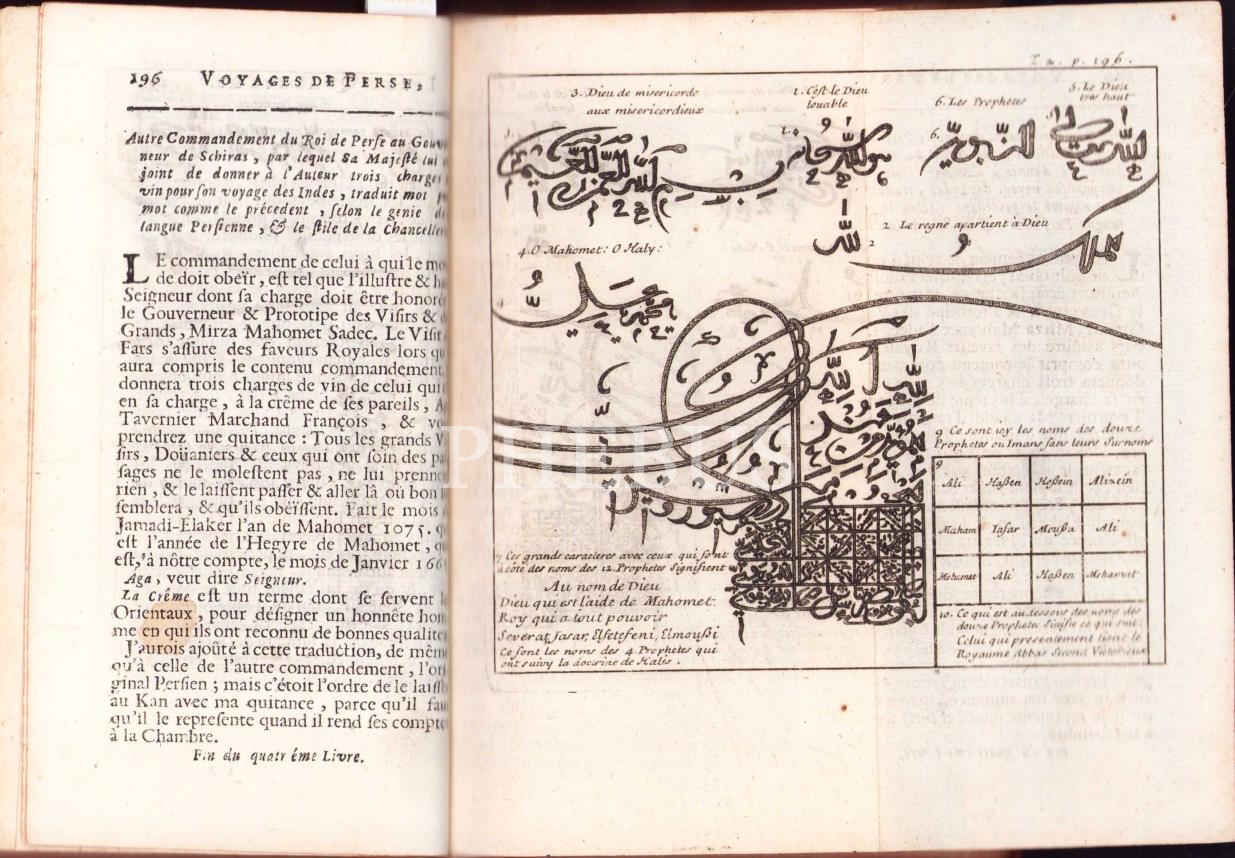 196 VOYAGES DE PERSE,
Autre Commandement du Roi de Perse au Gouv
neur de Schiras, par lequel Sa Majesté lui
joint de donner à l'Auteur trois charges
vin pour son voyage des Indes, traduit mot
mot comme le précedent, selon le genie
langue Persienne, & le stile de la Chancelle
LE commandement de celui à qui le mo
de doit obéïr, est tel que l'illustre & h
Seigneur dont sa charge doit être honor
le Gouverneur & Prototipe des Visirs &
Grands, Mirza Mahomet Sadec. Le Visir
Fars s'assure des faveurs Royales lors qu
aura compris le contenu commandement,
donnera trois charges de vin de celui qui
en sa charge, à la crême de ses pareils, A
Tavernier Marchand François, & vo
prendrez une quitance : Tous les grands V
sirs, Doüaniers & ceux qui ont soin des pa
sages ne le molestent pas, ne lui prenne
rien, & le laissent passer & aller là où bon l
semblera, & qu'ils obéïssent. Fait le mois
Jamadi-Elaker l'an de Mahomet 1075. q
est l'année de l'Hegyre de Mahomet, q
est, à nôtre compte, le mois de Janvier 166
Aga, veut dire Seigneur.
La Crême est un terme dont se servent l
Orientaux, pour désigner un honnête hom
me en qui ils ont reconnu de bonnes qualite
J'aurois ajoûté à cette traduction, de mêm
qu'à celle de l'autre commandement, l'ori
ginal Persien ; mais c'étoit l'ordre de le laisse
au Kan avec ma quitance, parce qu'il fau
qu'il le represente quand il rend ses compte
à la Chambre.
Fin du quatriéme Livre.
p. 196.
3. Dieu de misericorde
aux misericordieux
1. C'est le Dieu
louable
6. Les Prophetes
5. Le Dieu
tres haut
2 Le regne apartient à Dieu
4. O Mahomet: O Haly:
7 Ces grands caracteres avec ceux qui sont
à côté des noms des 12. Prophetes signifient
Au nom de Dieu
Dieu qui est l'aide de Mahomet.
Roy qui a tout pouvoir
Severat, Jasar, Elsetefeni, Elmoussi
Ce sont les noms des 4 Prophetes qui
ont suivy la doctrine de Halis.
9 Ce sont icy les noms des douze
Prophetes ou Imans sans leurs Surnoms
9
Ali Hassen Hossein Alizein
Maham Iafar Moussa Ali
Mohamet Ali Hassen Mohamet
10. Ce qui est au dessous des noms des
douze Prophetes sinifie ce qui suit:
Celui qui presentement tient le
Royaume Abbas Second Victorieux
PHEBUS